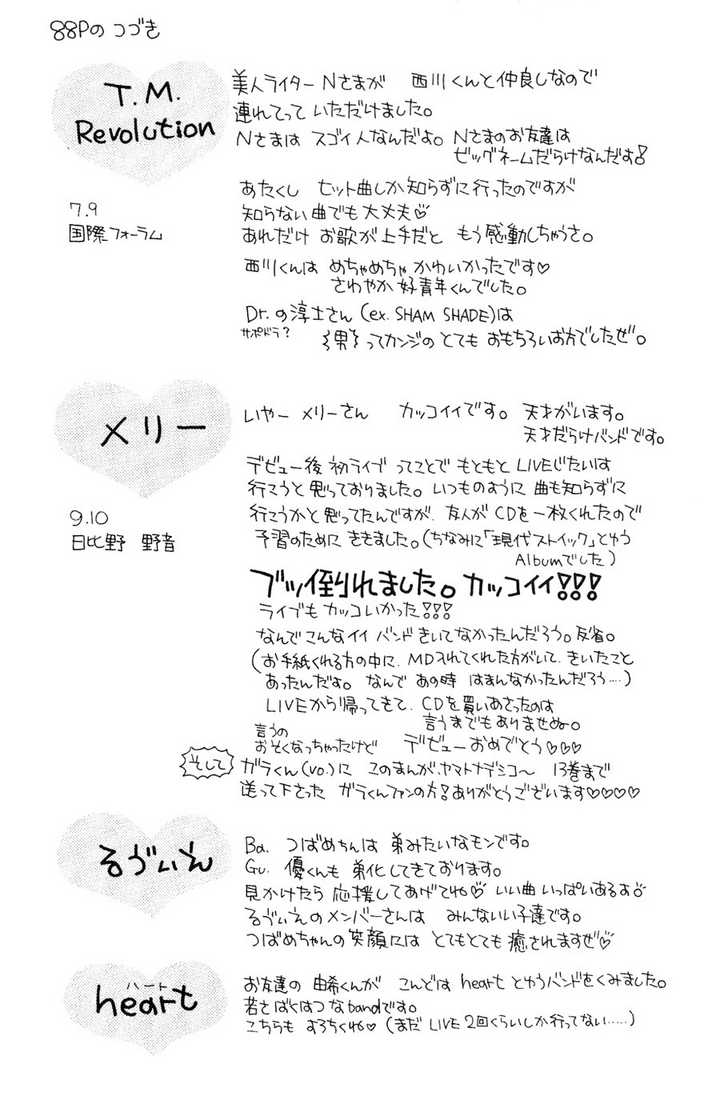 88Pの つづき
T.M.
Revolution
7.9
国際フォーラム
美人ライター Nさまが 西川くんと仲良しなので
連れてって いただけました。
Nさまは スゴイ人なんだよ。Nさまのお友達は
ビッグネームだらけなんだよ!
あたくし ヒット曲しか知らずに行ったのですが
知らない曲でも大丈夫♡
あれだけ お歌が上手だと もう感動しちゃうさ。
西川くんは めちゃめちゃ かわいかったです♡
さわやか 好青年くんでした。
Dr.の淳士さん(ex. SHAM SHADE)は
サポドラ?
〻男〻ってカンジの とても おもちろいお方でしたぜ。
メリー
9.10
日比野 野音
いやー メリーさん カッコイイです。天才がいます。
天才だらけバンドです。
デビュー後 初ライブ ってことで もともと LIVEじたいは
行こうと思っておりました。いつものように 曲も知らずに
行こうかと思ってたんですが、友人が CDを一枚くれたので
予習のために ききました。(ちなみに「現代ストイック」とゆう
Albumでした)
ブッ倒れました。カッコイイ!!!
ライブも カッコいかった!!!
なんで こんなイイ バンド きいてなかったんだろう。反省。
(お手紙くれる方の中に、MD入れてくれた方がいて、きいたこと
あったんだよ。なんで あの時 はまんなかったんだろう‥‥)
LIVEから帰ってきて、CDを買いあさったのは
言うまでもありませぬ。
言うの
おそくなっちゃったけど デビューおめでとう♡♡♡
そして
ガラくん(vo.)に このまんが、ヤマトナデシコ〜 13巻まで
送って下さった ガラくんファンの方!ありがとうございます♡♡♡♡
るゔぃえ
Ba. つばめちんは 弟みたいなモンです。
Gu. 優くんも 弟化してきております。
見かけたら 応援してあげてね♡ いい曲 いっぱいあるよ♡
るゔぃえのメンバーさんは みんないい子達です。
つばめちゃんの笑顔には とてもとても 癒されますぜ♡
ハート
heart
お友達の 由希くんが こんどは heart とゆうバンドをくみました。
若さばくはつなbandです。
こちらも よろちくね♡ (まだ LIVE 2回くらいしか行ってない‥‥‥)